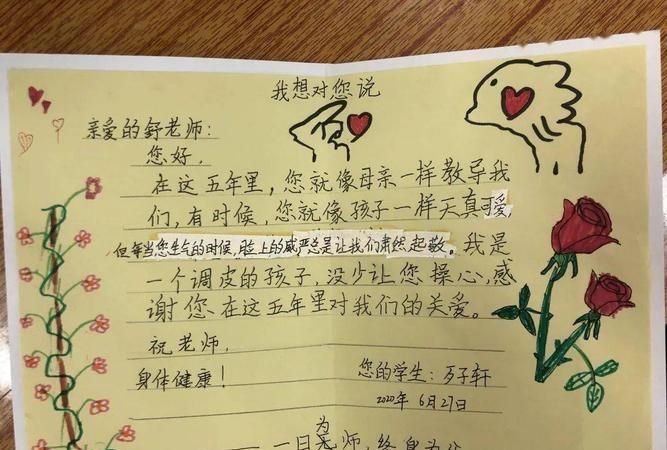 我想对您说
亲爱的舒老师:
您好,
在这五年里,您就像母亲一样教导我
们,有时候,您就像孩子一样天真可爱,
但每当您生气的时候,脸上的威严总是让我们肃然起敬。我是
一个调皮的孩子,没少让您操心,感
谢您在这五年里对我们的关爱。
祝老师,
身体健康!
您的学生:歹子轩
2020年 6月27日
为
一日
师,终身为父